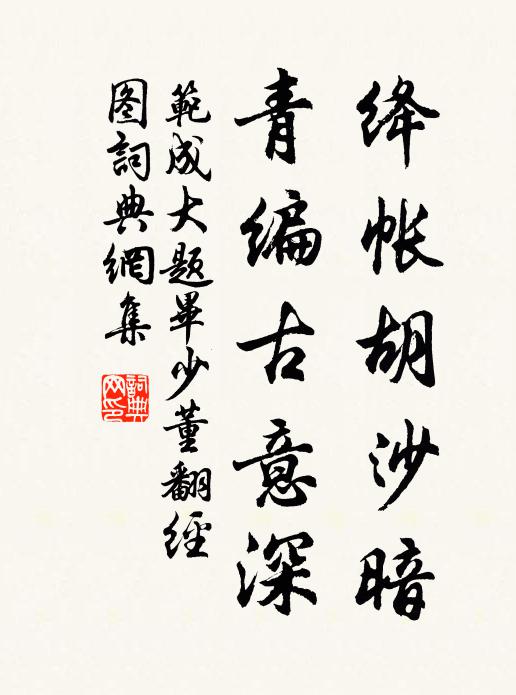 绛帐胡沙暗
青编古意深
範成大题畢少董翻經
图詞典網集
詞典網印